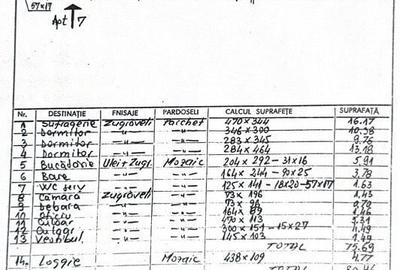 57×17
Apt 7
Nr. DESTINAȚIE FNISAJE PARDOSELI CALCUL SUPRAFEȚE SUPRAFAȚĂ
1 Sufragerie Zugrăveli Parchet 470 × 344 16.17
2 Dormitor —"— —"— 346 × 300 10.38
3 Dormitor —"— —"— 283 × 345 9.76
4 Dormitor —"— —"— 284 × 464 13.18
5 Bucătărie Ulei+Zugr. Mozaic 204 × 292 – 31×16 5.91
6 Baie —"— —"— 164 × 244 – 90×25 3.78
7 WC serv —"— —"— 125 × 141 – 18×20 – 57×17 1.63
8 Cămara Zugrăveli —"— 73 × 196 1.43
9 Debara —"— —"— 73 × 96 0.70
10 Oficiu —"— —"— 164 × 89 1.46
11 Culoar —"— —"— 470 × 113 5.31
12 Culoar —"— —"— 300 × 151 – 15×27 4.49
13 Vestibul —"— —"— 145 × 103 1.49
TOTAL 75.69
14. Loggie Mozaic 438 × 109 4.77
TOTAL 80.46